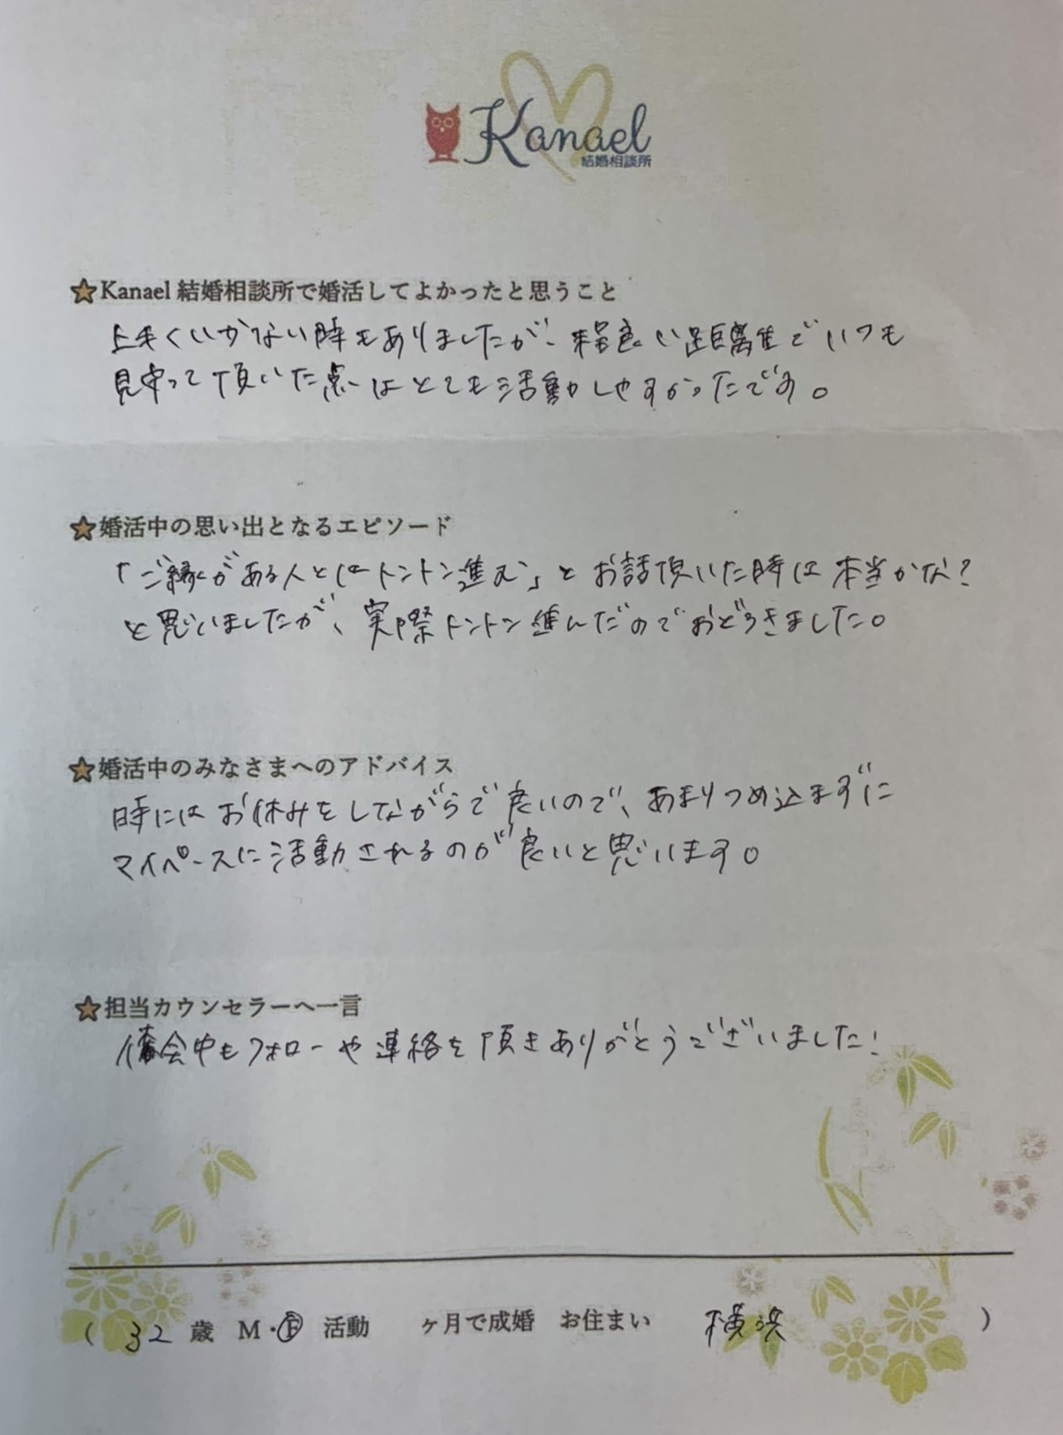 Kanael
結婚相談所
★Kanael 結婚相談所で婚活してよかったと思うこと
上手くいかない時もありましたが、程良い距離でいつも
見守って頂いた点はとても活動しやすかったです。
★婚活中の思い出となるエピソード
「ご縁がある人とはトントン進む」とお話頂いた時は本当かな?
と思いましたが、実際トントン進んだのでおどろきました。
★婚活中のみなさまへのアドバイス
時にはお休みをしながらで良いので、あまりつめ込まずに
マイペースに活動されるのが良いと思います。
★担当カウンセラーへ一言
休会中もフォローや連絡を頂きありがとうございました!
( 32 歳 M・F 活動 ヶ月で成婚 お住まい 横浜 )